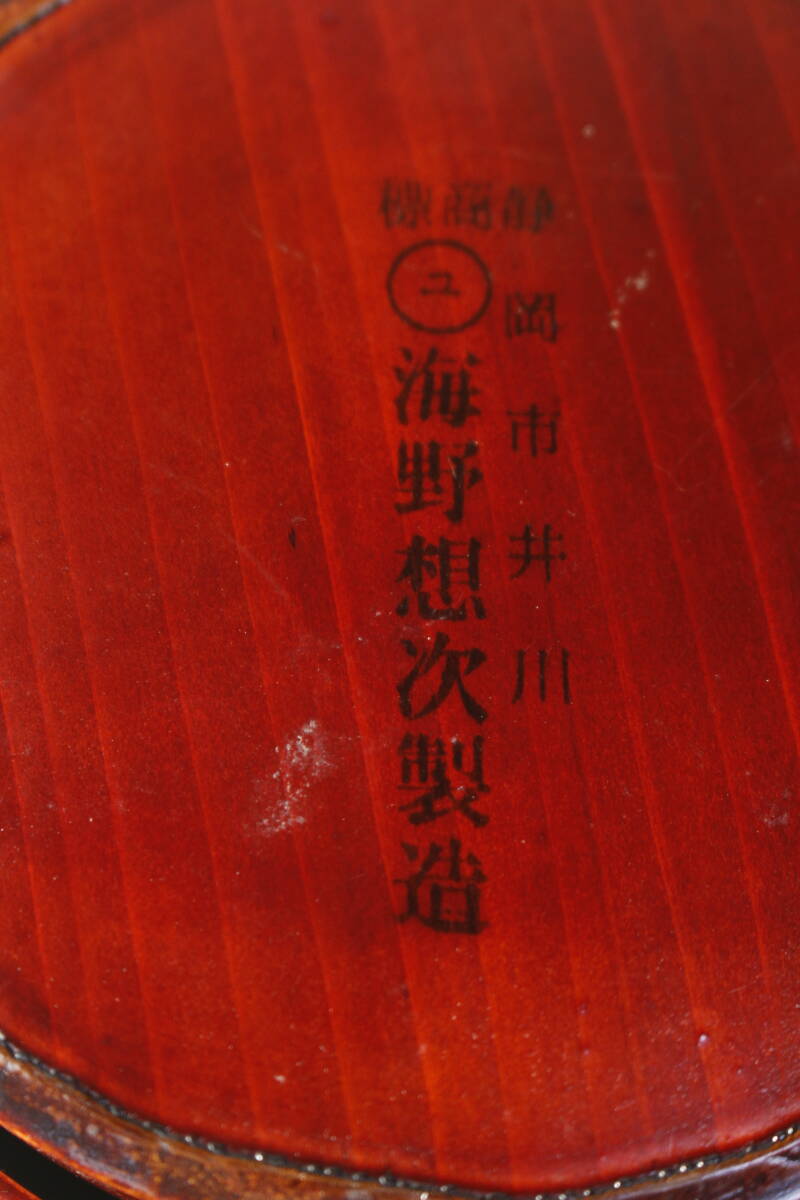 静岡市井川
商標
ユ
海野想次製造